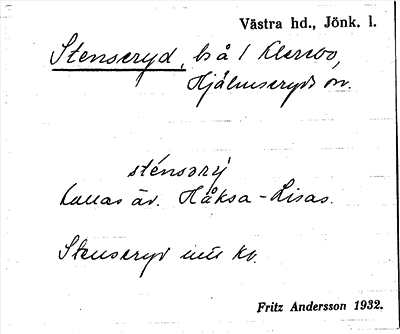 Västra hd., Jönk. l.
Stenseryd, bs å 1 Klerebo,
Hjälmseryds sn.
sténsərý
kallas äv. Håksa-Lisas.
Stenseryd
Fritz Andersson 1932.